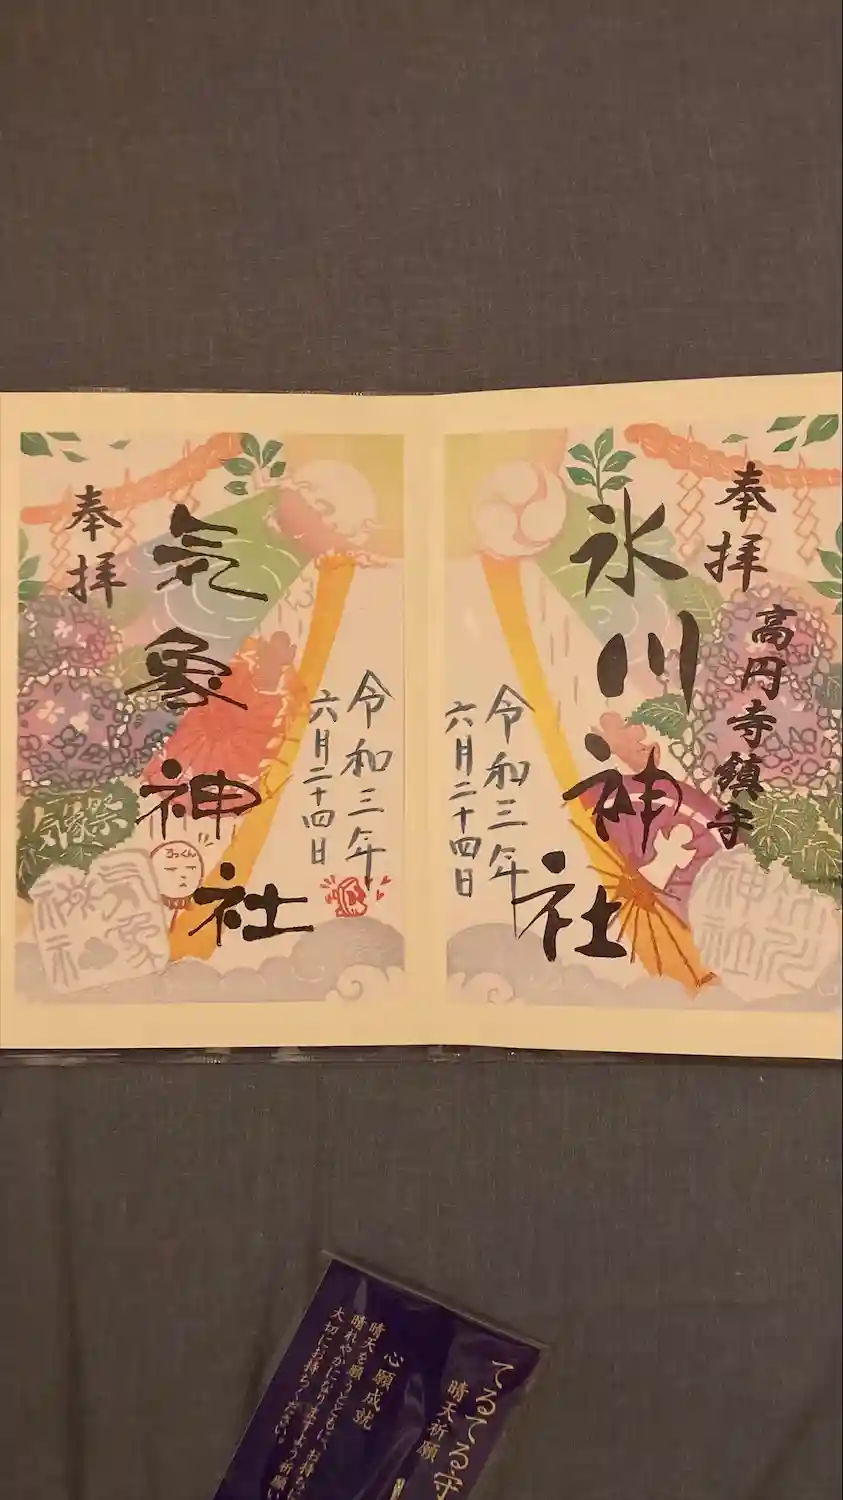 奉拝
高円寺鎮守
氷川神社
令和三年
六月二十四日
氷川
神社
奉拝
気象神社
令和三年
六月二十四日
気象祭
気象
神社
てるてる守
晴天祈願
心願成就
晴天を願うとともに、お持ちに
晴れやかになりますよう祈願い
大切にお持ちください。